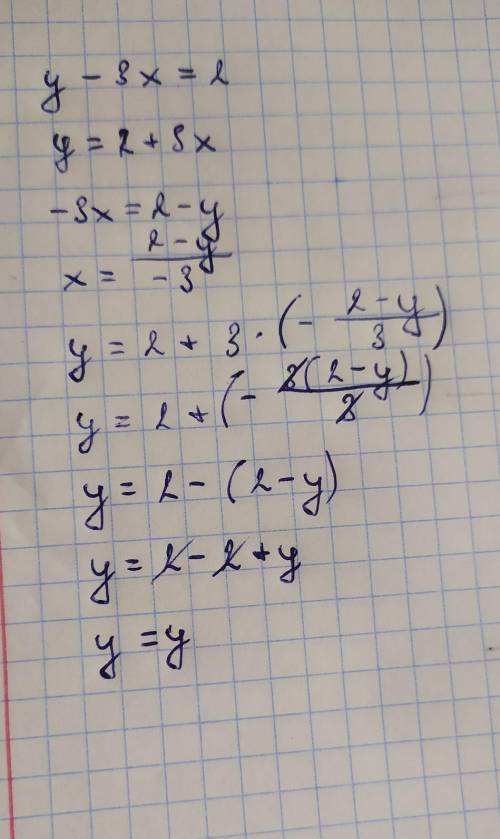 y - 3x = 2
y = 2 + 3x
-3x = 2 - y
x = \frac{2 - y}{-3}
y = 2 + 3 · (- \frac{2 - y}{3})
y = 2 + (- \frac{3(2 - y)}{3})
y = 2 - (2 - y)
y = 2 - 2 + y
y = y